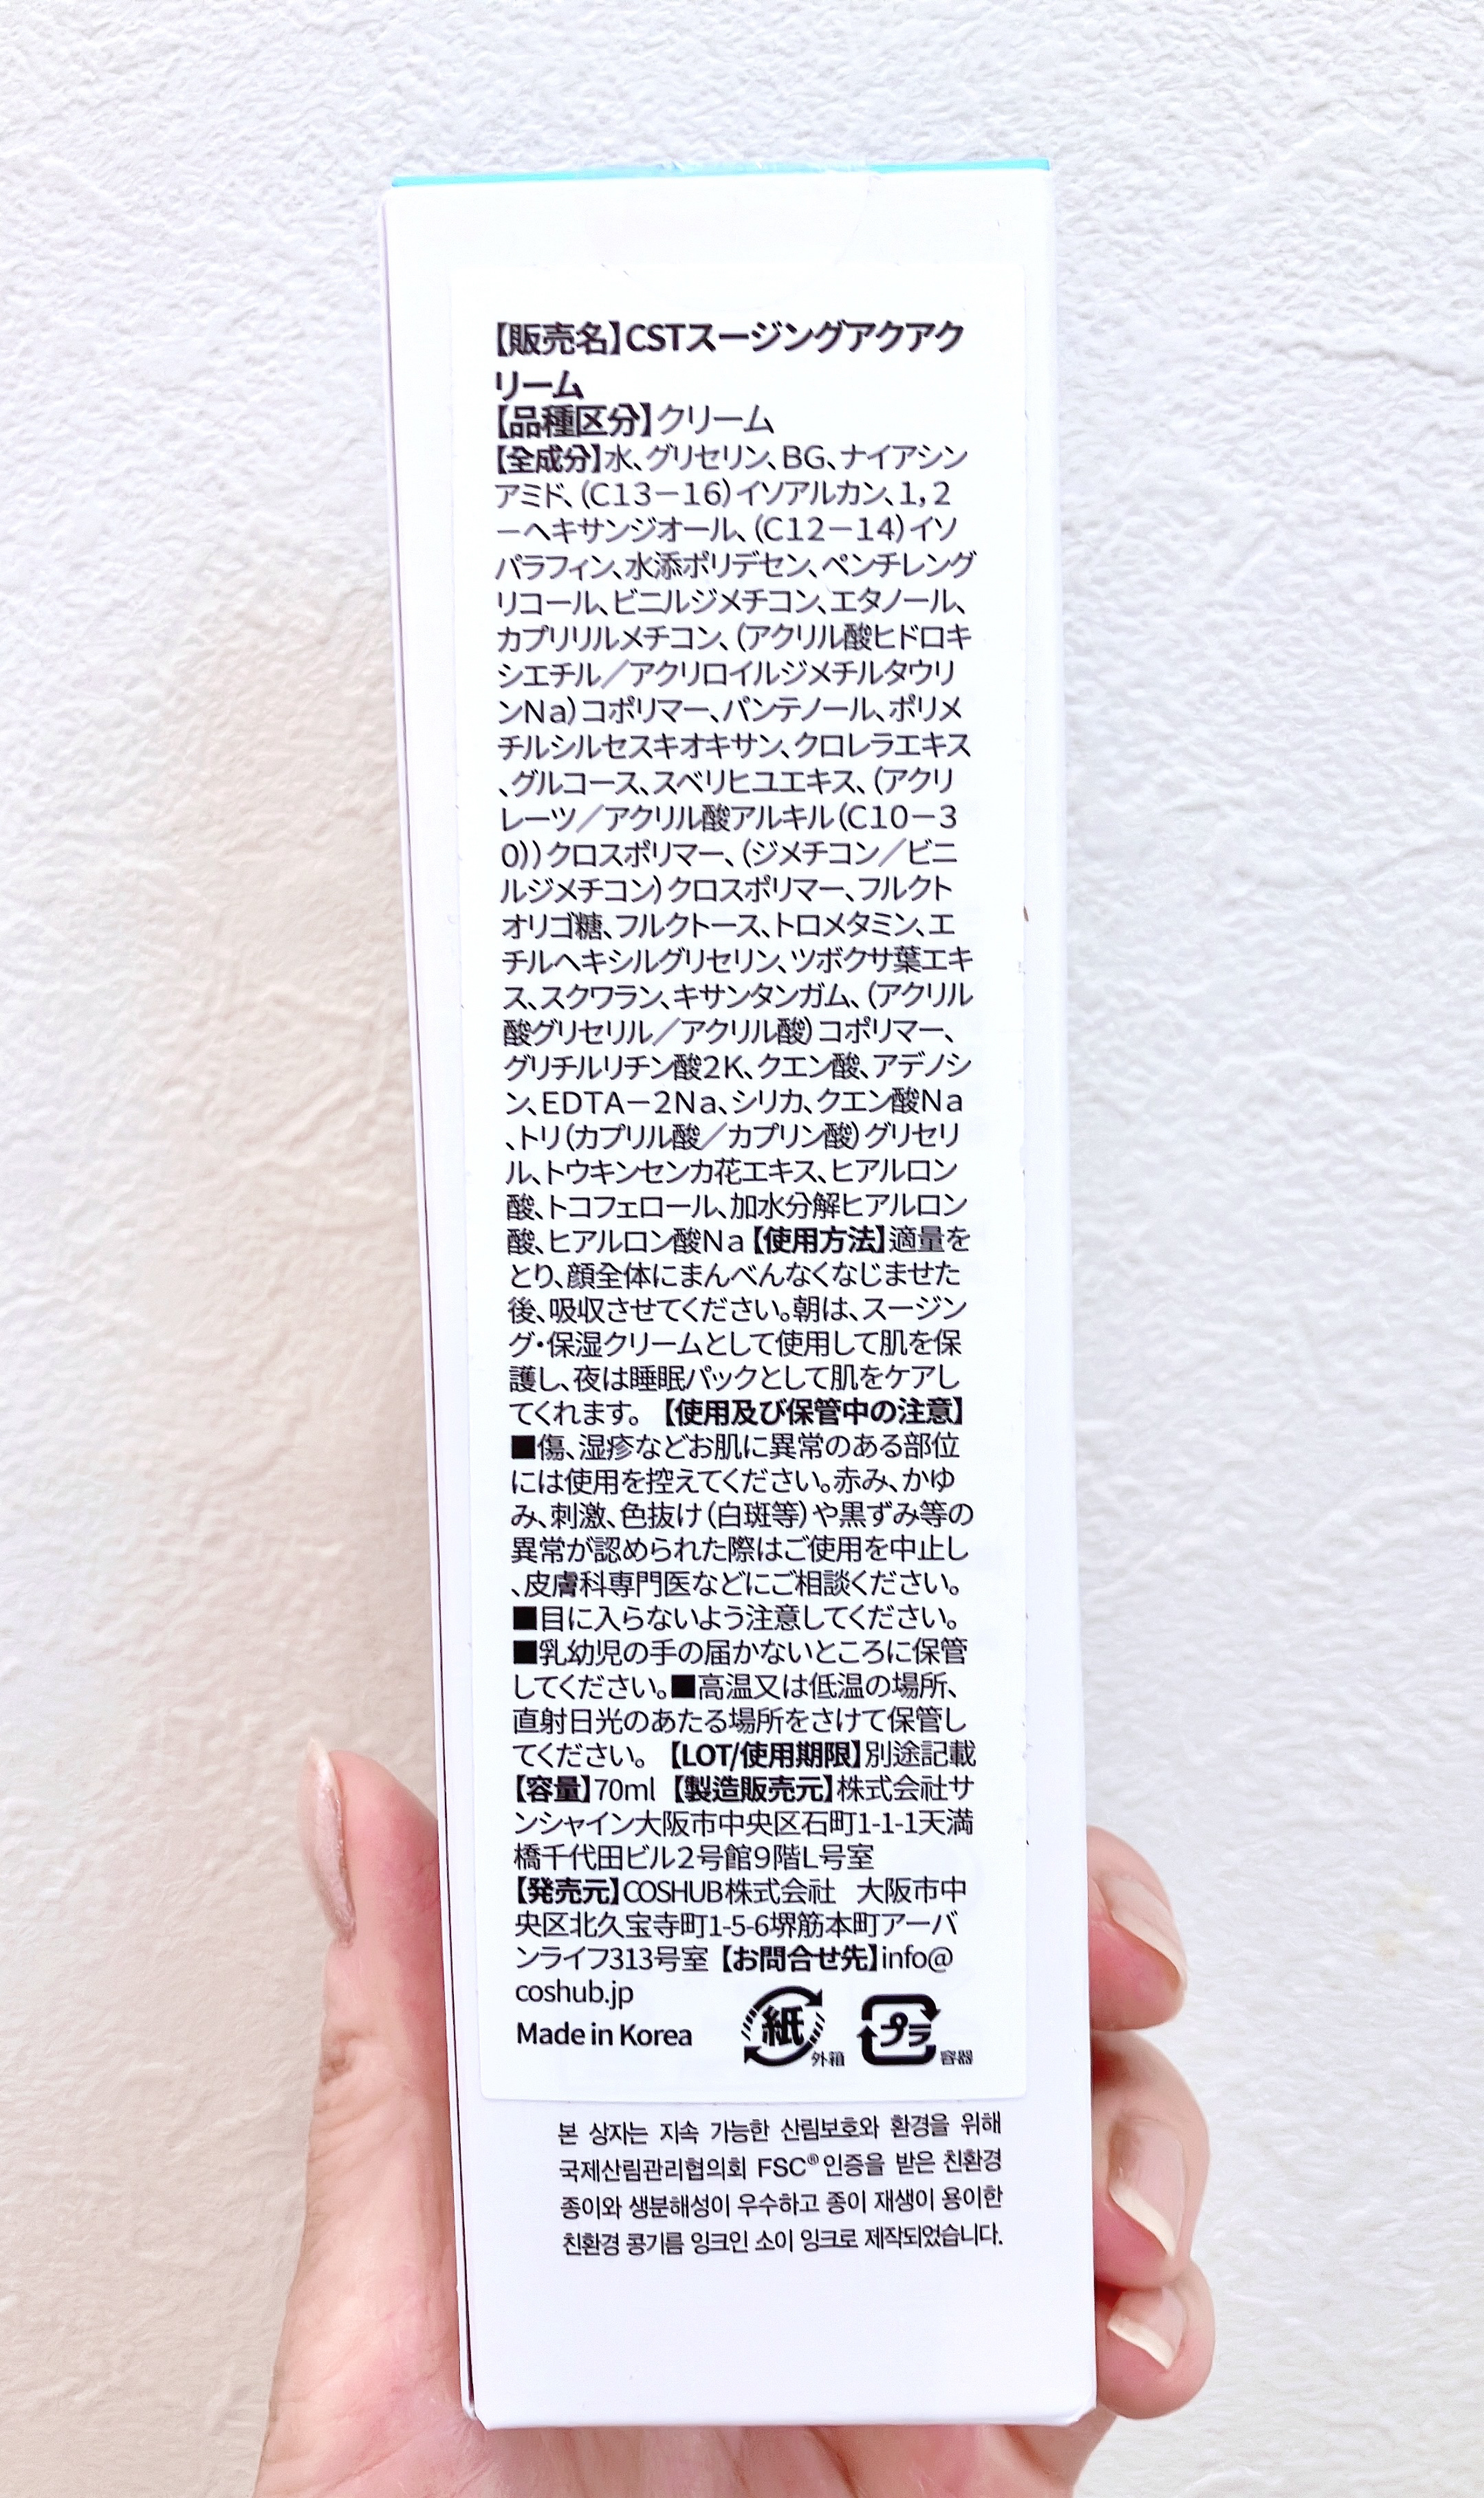 【販売名】CSTスージングアクアク
リーム
【品種区分】クリーム
【全成分】水、グリセリン、BG、ナイアシン
アミド、(C13－16)イソアルカン、1,2
－ヘキサンジオール、(C12－14)イソ
パラフィン、水添ポリデセン、ペンチレング
リコール、ビニルジメチコン、エタノール、
カプリリルメチコン、(アクリル酸ヒドロキ
シエチル／アクリロイルジメチルタウリ
ンNa)コポリマー、パンテノール、ポリメ
チルシルセスキオキサン、クロレラエキス
、グルコース、スベリヒユエキス、(アクリ
レーツ／アクリル酸アルキル(C10－3
0))クロスポリマー、(ジメチコン／ビニ
ルジメチコン)クロスポリマー、フルクト
オリゴ糖、フルクトース、トロメタミン、エ
チルヘキシルグリセリン、ツボクサ葉エキ
ス、スクワラン、キサンタンガム、(アクリル
酸グリセリル／アクリル酸)コポリマー、
グリチルリチン酸2K、クエン酸、アデノシ
ン、EDTA－2Na、シリカ、クエン酸Na
、トリ(カプリル酸／カプリン酸)グリセリ
ル、トウキンセンカ花エキス、ヒアルロン
酸、トコフェロール、加水分解ヒアルロン
酸、ヒアルロン酸Na【使用方法】適量を
とり、顔全体にまんべんなくなじませた
後、吸収させてください。朝は、スージン
グ・保湿クリームとして使用して肌を保
護し、夜は睡眠パックとして肌をケアし
てくれます。【使用及び保管中の注意】
■傷、湿疹などお肌に異常のある部位
には使用を控えてください。赤み、かゆ
み、刺激、色抜け(白斑等)や黒ずみ等の
異常が認められた際はご使用を中止し
、皮膚科専門医などにご相談ください。
■目に入らないよう注意してください。
■乳幼児の手の届かないところに保管
してください。■高温又は低温の場所、
直射日光のあたる場所をさけて保管し
てください。【LOT/使用期限】別途記載
【容量】70ml【製造販売元】株式会社サ
ンシャイン大阪市中央区石町1-1-1天満
橋千代田ビル2号館9階L号室
【発売元】COSHUB株式会社 大阪市中
央区北久宝寺町1-5-6堺筋本町アーバ
ンライフ313号室【お問合せ先】info@
coshub.jp
Made in Korea
紙 外箱 プラ 容器
본 상자는 지속 가능한 산림보호와 환경을 위해
국제산림관리협의회 FSC® 인증을 받은 친환경
종이와 생분해성이 우수하고 종이 재생이 용이한
친환경 콩기름 잉크인 소이 잉크로 제작되었습니다.